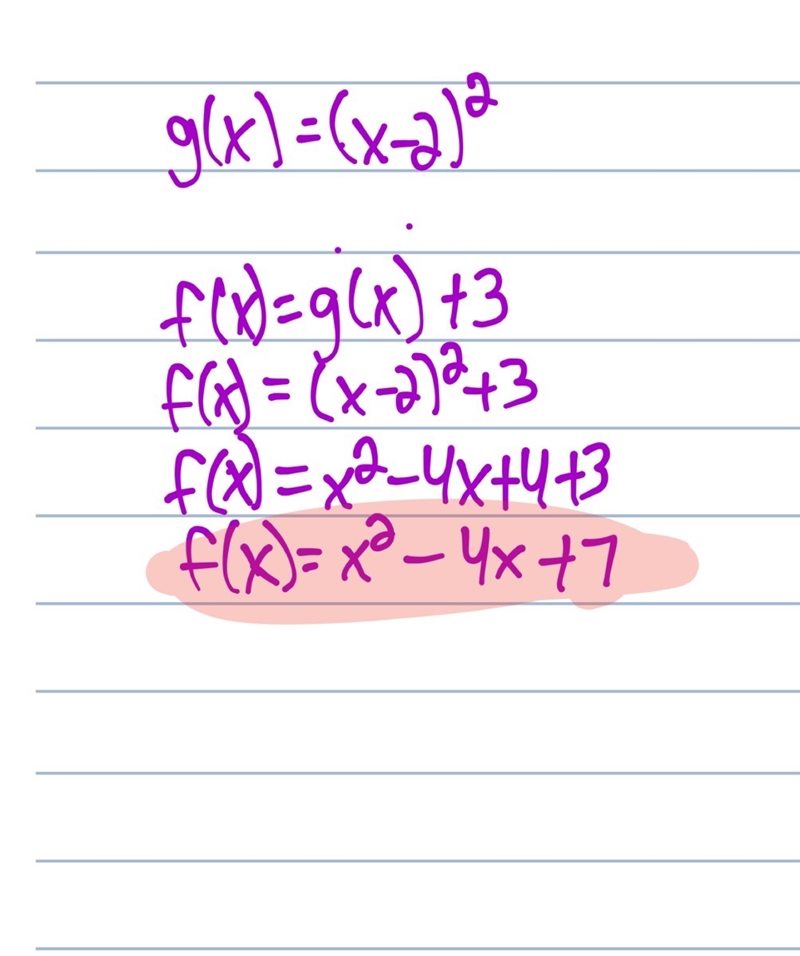 g(x) = (x-2)²
f(x) = g(x) + 3
f(x) = (x-2)² + 3
f(x) = x² - 4x + 4 + 3
f(x) = x² - 4x + 7